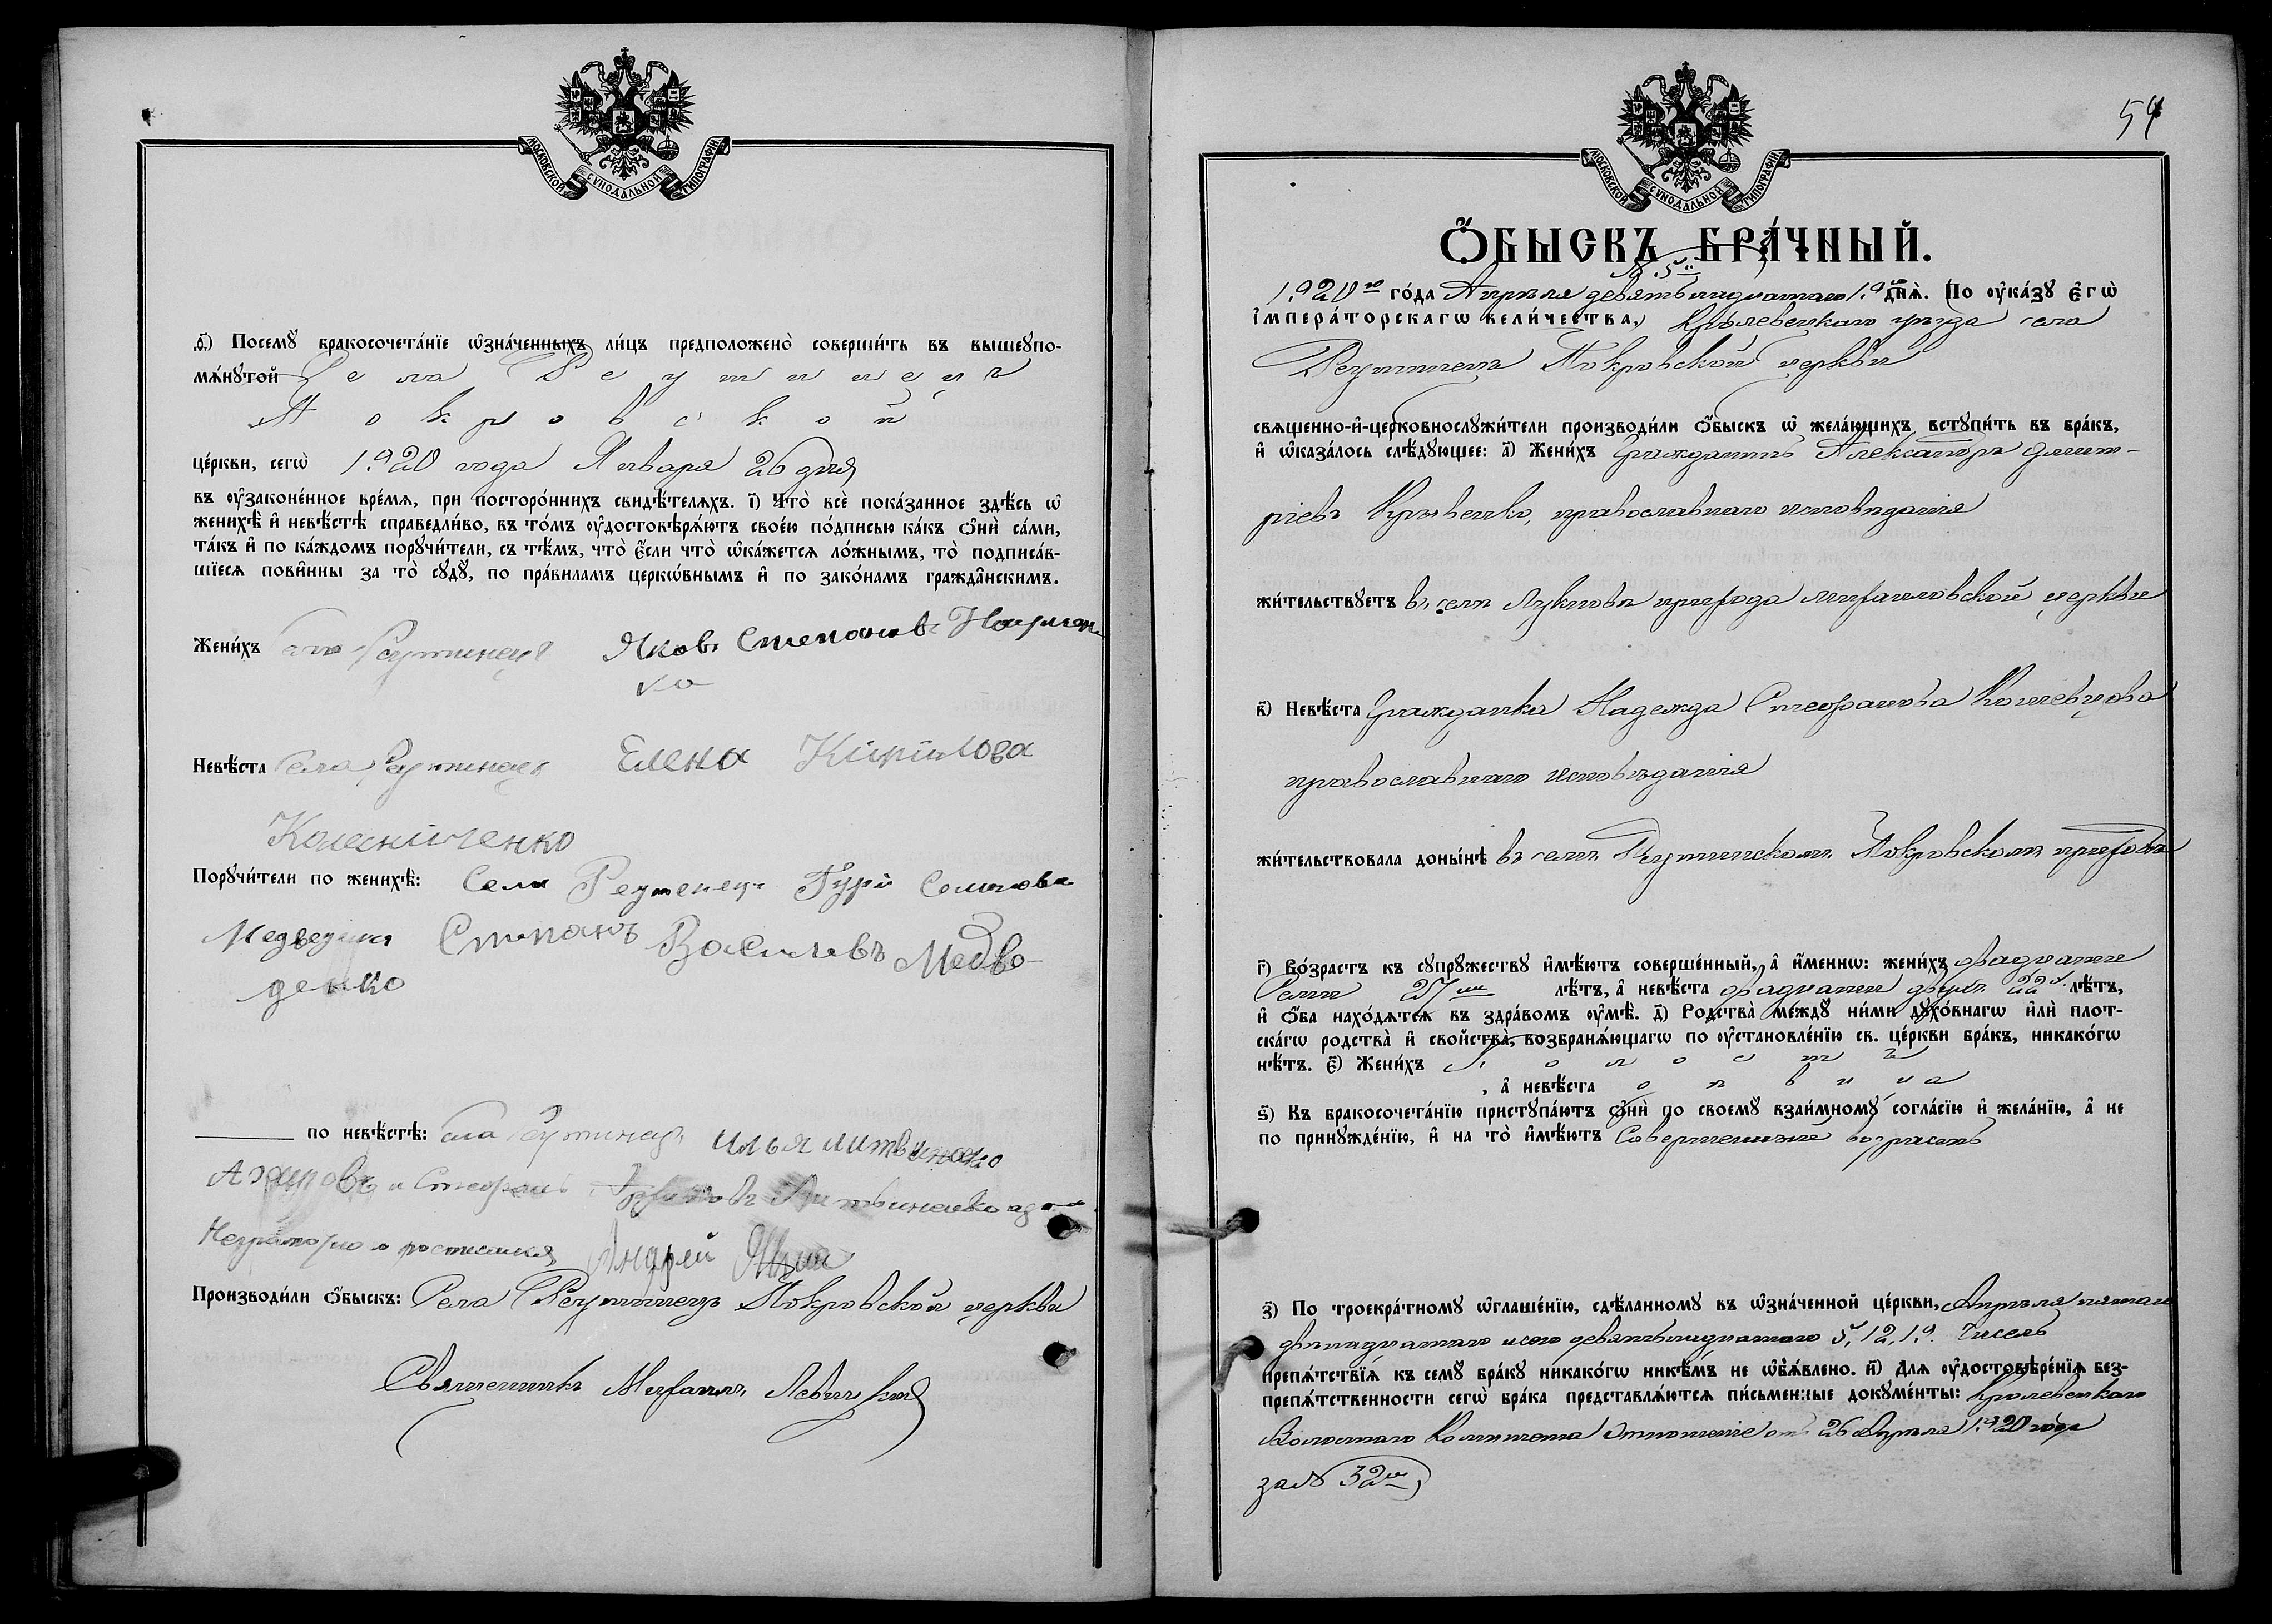 МОСКОВСКОЙ СѴНОДАЛЬНОЙ ТИПОГРАФІИ
ѳ҃) Посемꙋ̀ бракосочета́нїе ѡ҆зна́ченныхъ ли́цъ предположено̀ соверши́ть въ вышеꙋпо-
мѧ́нꙋтой Села Реутинецъ
Покровской
це́ркви, сегѡ̀ 1920 года Января 26 дня
въ ᲂу҆законе́нное вре́мѧ, при посторо́ннихъ свидѣ́телѧхъ. і҃) Что̀ всѐ пока́занное здѣ́сь ѡ҆
женихѣ̀ и҆ невѣ́стѣ справедли́во, въ то́мъ ᲂу҆достовѣрѧ́ютъ свое́ю по́дписью ка́къ ѻ҆нѝ са́ми,
та́къ и҆ по ка́ждомъ порꙋчи́тели, съ тѣ́мъ, что̀ є҆́сли что̀ ѡ҆ка́жетсѧ ло́жнымъ, то̀ подписа́в-
шїесѧ пови́нны за то̀ сꙋдꙋ̀, по пра́виламъ церко́внымъ и҆ по зако́намъ гражда́нскимъ.
Жени́хъ Реутинецъ Яковъ Степановъ Науменко
Невѣ́ста Села Реутинецъ Елена Кірілова
Колесніченко
Порꙋчи́тели по женихѣ̀: Села Реутенецъ Гурі
Степанъ Васильевъ Медве-
денко
по невѣ́стѣ: Села Реутинецъ илья литвиненко
и Стефанъ Литвиненко
Неграмотно Андрей
Производи́ли ѻ҆́быскъ: Села Реутинецъ Покровской церкви
Священникъ Михаилъ Левицкій
54
МОСКОВСКОЙ СѴНОДАЛЬНОЙ ТИПОГРАФІИ
Ѻ҆́БЫСКЪ БРА́ЧНЫЙ.
№ 5й
1920го го́да Апрѣля девятьнадцатаго 19 дня̀. По ᲂу҆ка́зꙋ є҆гѡ̀
і҆мпера́торскагѡ вели́чества, Кролевецкаго уѣзда села
Реутинецъ Покровской церкви
свѧще́нно-и҆-церковнослꙋжи́тели производи́ли ѻ҆́быскъ ѡ҆ жела́ющихъ встꙋпи́ть въ бра́къ,
и҆ ѡ҆каза́лось слѣ́дꙋющее: а҃) Жени́хъ Гражданинъ Александръ Димит-
ріевъ православнаго исповѣданія
жи́тельствꙋетъ въ селѣ прихода михаиловской церкви
в҃) Невѣ́ста Гражданка Надежда Стефанова
православнаго исповѣданія
жи́тельствовала доны́нѣ въ селѣ Реутинскомъ Покровскомъ приходѣ
г҃) Во́зрастъ къ сꙋпрꙋ́жествꙋ и҆мѣ́ютъ соверше́нный, а҆ и҆́менно: жени́хъ двадцати
Семи 27ми лѣ́тъ, а҆ невѣ́ста двадцати двухъ 22хъ лѣ́тъ,
и҆ ѻ҆́ба нахо́дѧтсѧ въ здра́вомъ ᲂу҆мѣ̀. д҃) Родства̀ ме́ждꙋ ни́ми дꙋхо́внагѡ и҆лѝ плот-
ска́гѡ родства̀ и҆ свойства̀, возбранѧ́ющагѡ по ᲂу҆становле́нїю св. це́ркви бра́къ, никако́гѡ
нѣ́тъ. є҃) Жени́хъ Холостъ
, а҆ невѣ́ста дѣвица
ѕ҃) Къ бракосочета́нїю пристꙋпа́ютъ ѻ҆нѝ по своемꙋ̀ взаи́мномꙋ согла́сїю и҆ жела́нїю, а҆ не
по принꙋжде́нїю, и҆ на то̀ и҆мѣ́ютъ Совершенный возрастъ
з҃) По троекра́тномꙋ ѡ҆глаше́нїю, сдѣ́ланномꙋ въ ѡ҆зна́ченной це́ркви, Апрѣля пятаго
двенадцатаго и девятьнадцатаго 5, 12, 19. Числъ
препѧ́тствїѧ къ семꙋ̀ бра́кꙋ никако́гѡ никѣ́мъ не ѡ҆б̾ѧ́влено. и҃) Длѧ ᲂу҆достовѣре́нїѧ без-
препѧ́тственности сегѡ̀ бра́ка представлѧ́ютсѧ пи́сьменные докꙋме́нты: Кролевецкаго
Волостнаго Комитета Отношеніе отъ 26 Апрѣля 1920 года
за № 32м